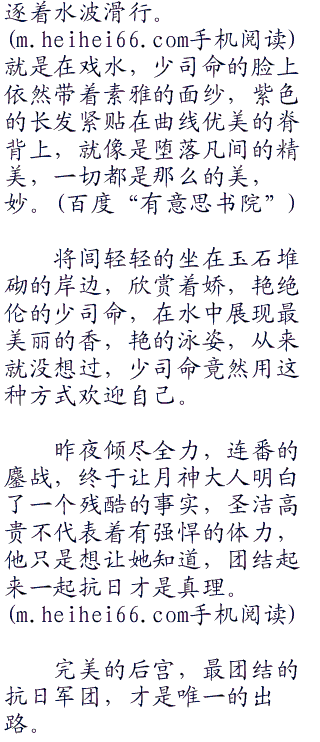 逐着水波滑行。
(m.heihei66.com手机阅读)
就是在戏水，少司命的脸上
依然带着素雅的面纱，紫色
的长发紧贴在曲线优美的脊
背上，就像是堕落凡间的精
美，一切都是那么的美，
妙。(百度“有意思书院”)
将闾轻轻的坐在玉石堆
砌的岸边，欣赏着娇，艳绝
伦的少司命，在水中展现最
美丽的香，艳的泳姿，从来
就没想过，少司命竟然用这
种方式欢迎自己。
昨夜倾尽全力，连番的
鏖战，终于让月神大人明白
了一个残酷的事实，圣洁高
贵不代表着有强悍的体力，
他只是想让她知道，团结起
来一起抗日才是真理。
(m.heihei66.com手机阅读)
完美的后宫，最团结的
抗日军团，才是唯一的出
路。